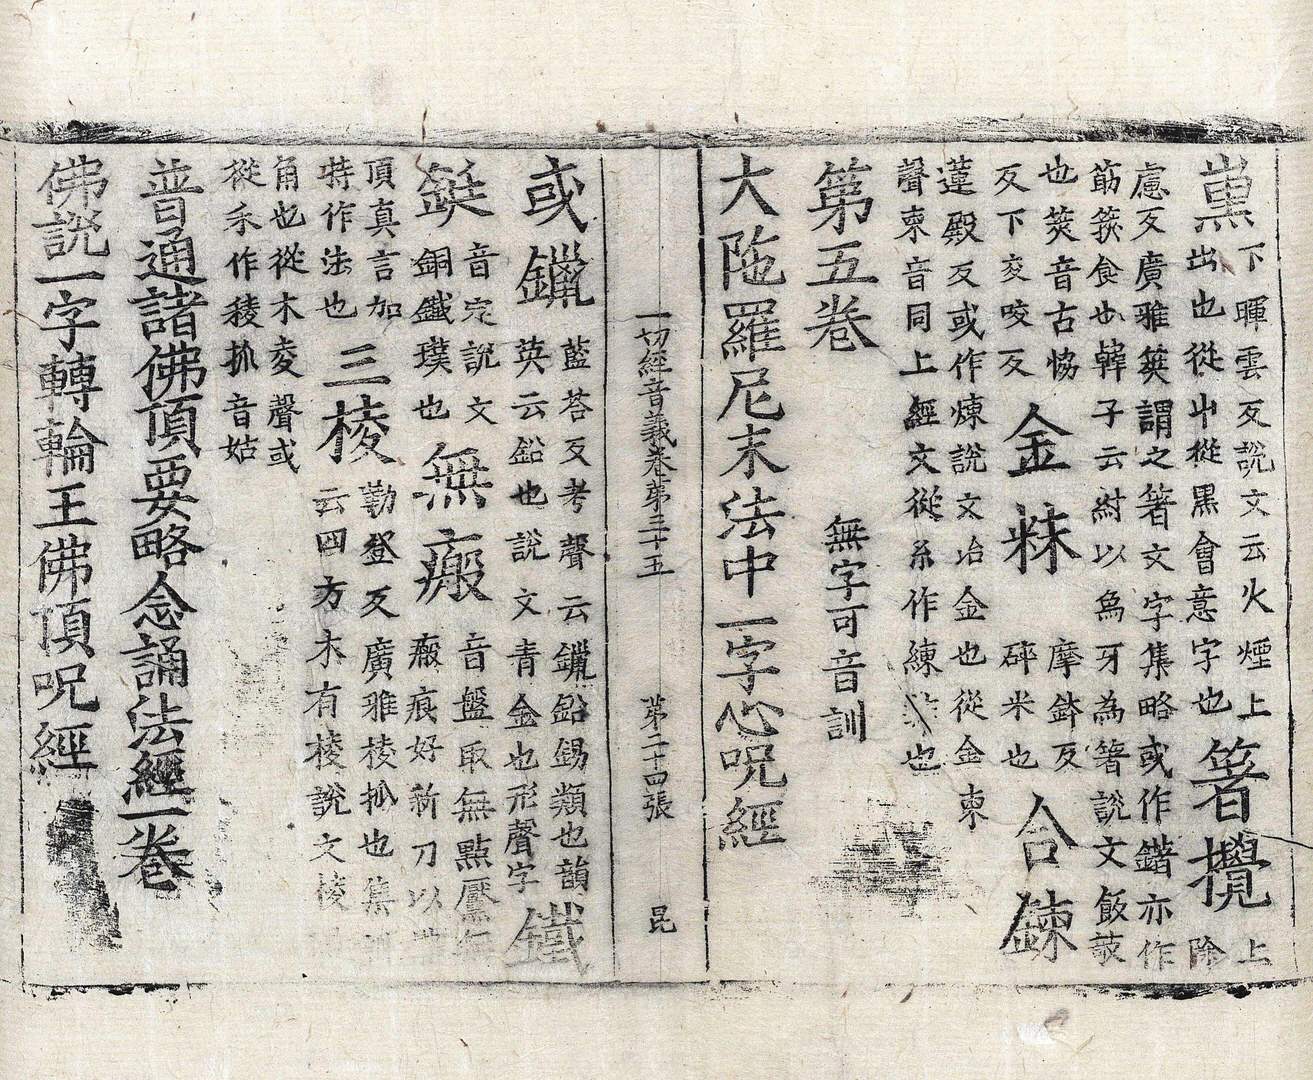 黨
下暉雲反說文云火煙上
出也從屮從黑會意字也
箸攪
上
除
慮反廣雅筴謂之箸文字集略或作鐯亦作
筯筴食也韓子云紂以爲牙為箸說文飯攲
也筴音古協
反下交咬反
金粖
摩鉢反
碎米也
合鍊
蓮殿反或作煉說文冶金也從金柬
聲柬音同上經文從糸作練也
第五卷
無字可音訓
大陁羅尼末法中一字心呪經
一切經音義卷第三十五 第二十四張 昆
或鑞
藍荅反考聲云鑞鉛錫類也韻
英云鉛也說文青金也形聲字
鐵
鋌
音定說文
銅鐵璞也
無瘢
音盤取無點黶無
瘢痕好新刀以
頂真言加
持作法也
三棱
勒登反廣雅棱抓也集訓
云四方木有棱說文棱
角也從木夌聲或
從禾作稜抓音姑
普通諸佛頂要略念誦法經一卷
佛說一字轉輪王佛頂呪經